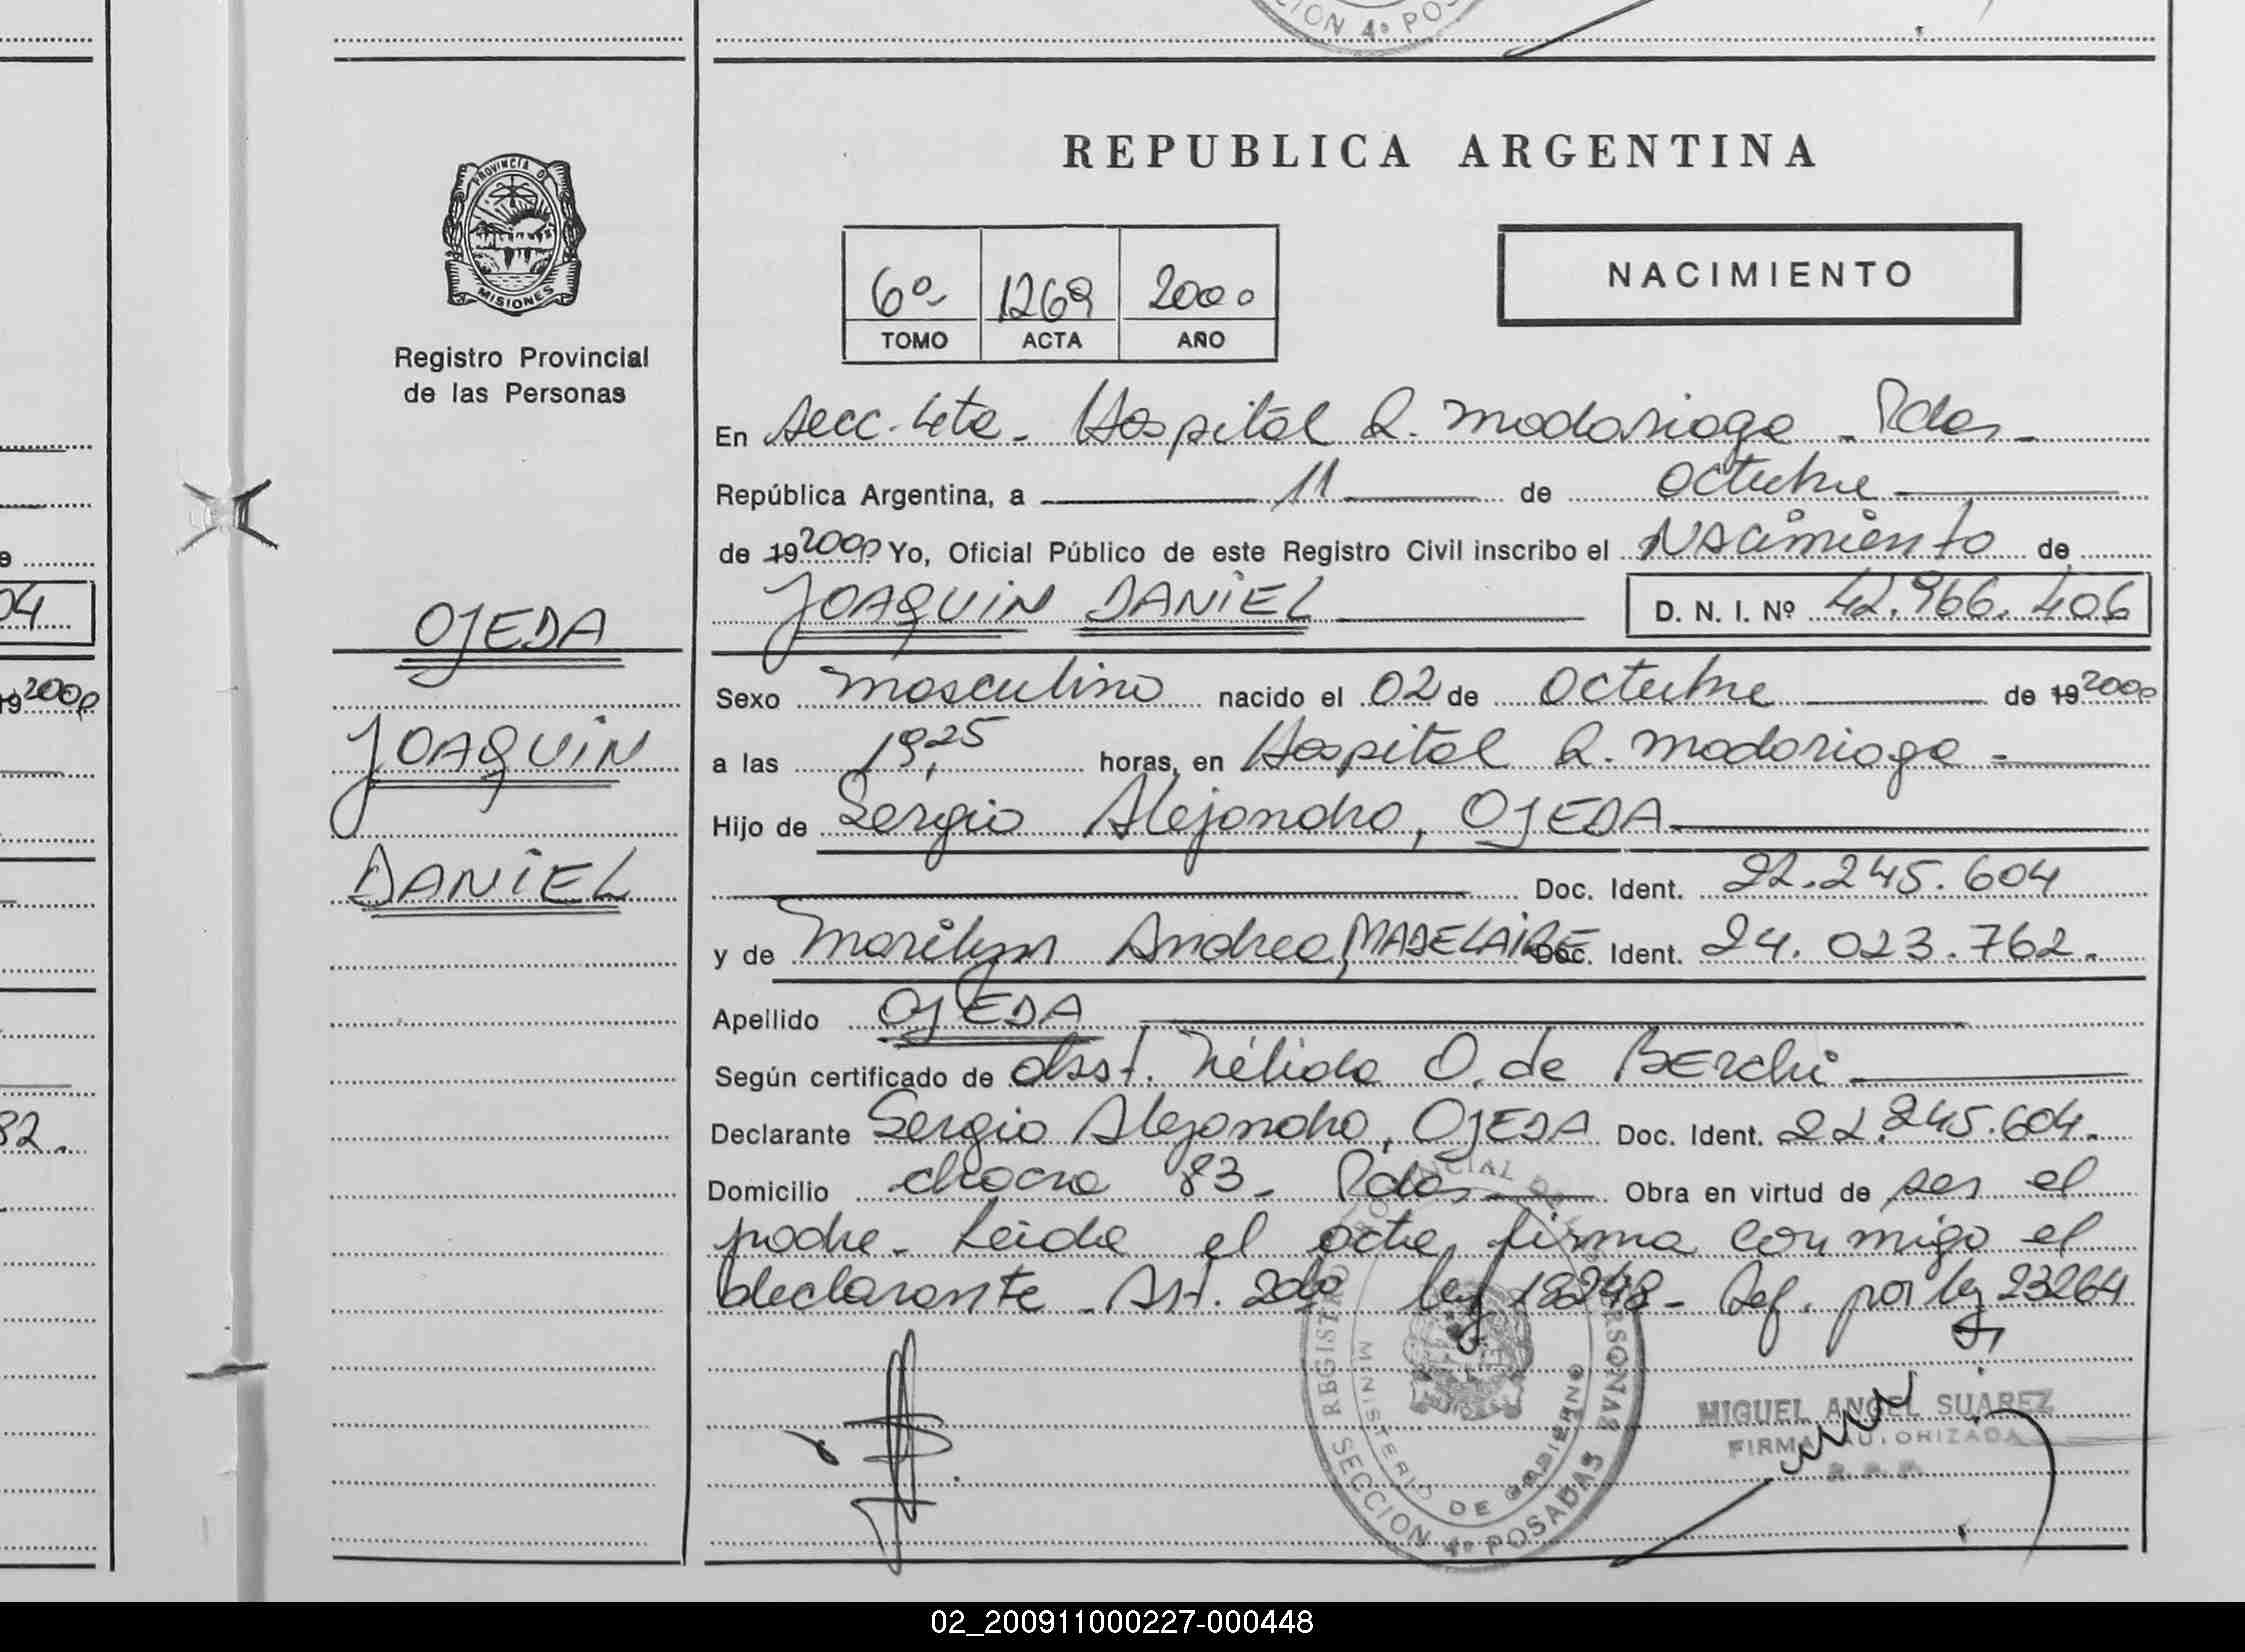 CION 4º PO
REPUBLICA ARGENTINA
PROVINCIA D
MISIONES
Registro Provincial
de las Personas
6º 1269 2000
TOMO ACTA AÑO
NACIMIENTO
En Secc. 4ta. Hospital R. Madariaga - Pdas -
República Argentina, a 11 de octubre
de 19 2000 Yo, Oficial Público de este Registro Civil inscribo el Nacimiento de
JOAQUIN DANIEL D. N. I. Nº 42.966.406
OJEDA
JOAQUIN
DANIEL
Sexo masculino nacido el 02 de octubre de 19 2000
a las 19,25 horas, en Hospital R. Madariaga -
Hijo de Sergio Alejandro, OJEDA
Doc. Ident. 22.245.604
y de Marilyn Andrea, MADELAIRE Doc. Ident. 24.023.762.
Apellido OJEDA
Según certificado de obst. Nélida O. de Berchi
Declarante Sergio Alejandro, OJEDA Doc. Ident. 22.245.604.
Domicilio chacra 83 - Pdas Obra en virtud de ser el
padre - Leída el acta, firma conmigo el
declarante - Art. 2do ley 18248 - Ref. por ley 23264
MINISTERIO DE GOBIERNO
SECCION 4º POSADAS
MIGUEL ANGEL SUAREZ
FIRMA AUTORIZADA
04
19 2000
82.
02_200911000227-000448